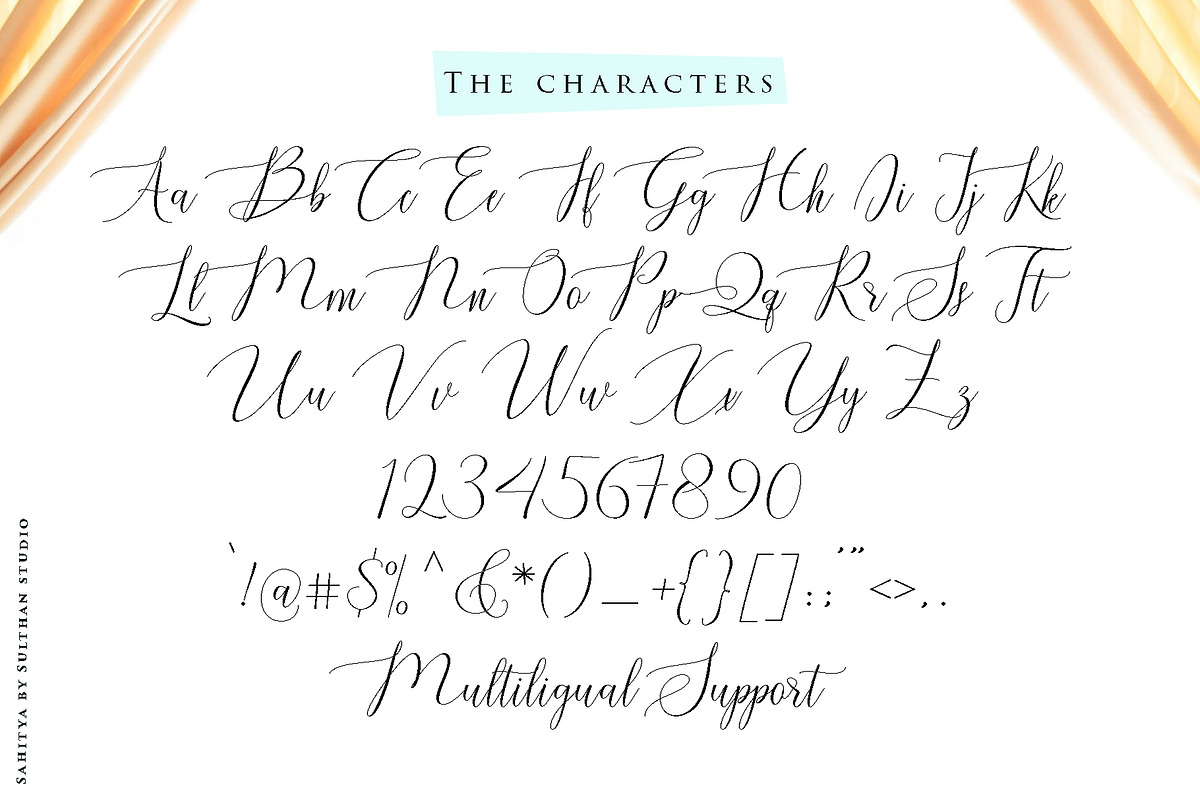 THE CHARACTERS
Aa Bb Cc Ee Ff Gg Hh Ii Jj Kk
Ll Mm Nn Oo Pp Qq Rr Ss Tt
Uu Vv Ww Xx Yy Zz
1234567890
`!@#$%^&*()_+{}[]:;'"<>,.
Multiligual Support
SAHITYA BY SULTHAN STUDIO